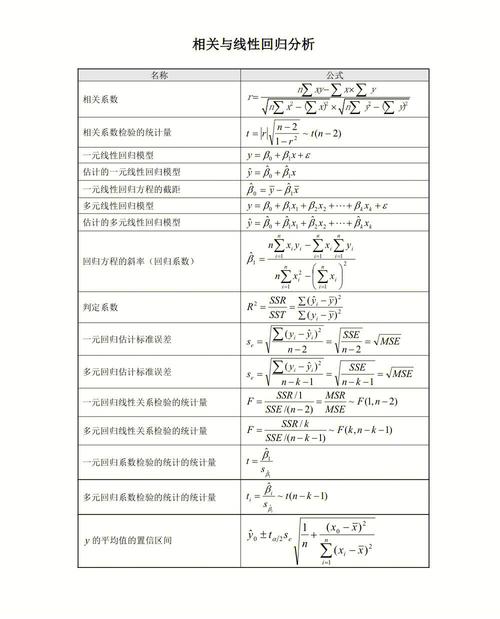 相关与线性回归分析
名称 公式
相关系数 r = (n∑xy − ∑x × ∑y) / (√(n∑x² − (∑x)²) × √(n∑y² − (∑y)²))
相关系数检验的统计量 t = |r|√((n−2)/(1−r²)) ~ t(n−2)
一元线性回归模型 y = β₀ + β₁x + ε
估计的一元线性回归模型 ŷ = β̂₀ + β̂₁x
一元线性回归方程的截距 β̂₀ = y̅ − β̂₁x̅
多元线性回归模型 y = β₀ + β₁x₁ + β₂x₂ + ⋯ + βₖxₖ + ε
估计的多元线性回归模型 ŷ = β̂₀ + β̂₁x₁ + β̂₂x₂ + ⋯ + β̂ₖxₖ
回归方程的斜率（回归系数） β̂₁ = (n∑ᵢ₌₁ⁿ xᵢyᵢ − ∑ᵢ₌₁ⁿ xᵢ ∑ᵢ₌₁ⁿ yᵢ) / (n∑ᵢ₌₁ⁿ xᵢ² − (∑ᵢ₌₁ⁿ xᵢ)²)
判定系数 R² = SSR/SST = ∑(ŷᵢ − y̅)² / ∑(yᵢ − y̅)²
一元回归估计标准误差 sₑ = √(∑(yᵢ − ŷᵢ)² / (n−2)) = √(SSE/(n−2)) = √MSE
多元回归估计标准误差 sₑ = √(∑(yᵢ − ŷᵢ)² / (n−k−1)) = √(SSE/(n−k−1)) = √MSE
一元回归线性关系检验的统计量 F = (SSR/1) / (SSE/(n−2)) = MSR/MSE ~ F(1, n−2)
多元回归线性关系检验的统计量 F = (SSR/k) / (SSE/(n−k−1)) ~ F(k, n−k−1)
一元回归系数检验的统计的统计量 t = β̂₁ / s_β̂₁
多元回归系数检验的统计的统计量 tᵢ = β̂ᵢ / s_β̂ᵢ ~ t(n−k−1)
y 的平均值的置信区间 ŷ₀ ± t_α/2 sₑ √(1/n + (x₀ − x̅)² / ∑ᵢ₌₁ⁿ (xᵢ − x̅)²)